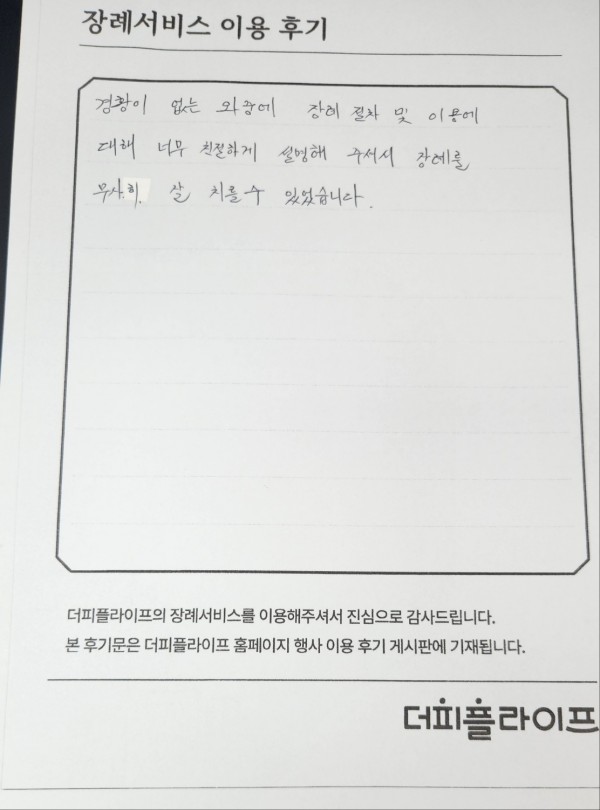 장례서비스 이용 후기
경황이 없는 와중에 장례 절차 및 이용에
대해 너무 친절하게 설명해 주셔서 장례를
무사히 잘 치를 수 있었습니다.
더피플라이프의 장례서비스를 이용해주셔서 진심으로 감사드립니다.
본 후기문은 더피플라이프 홈페이지 행사 이용 후기 게시판에 기재됩니다.
더피플라이프